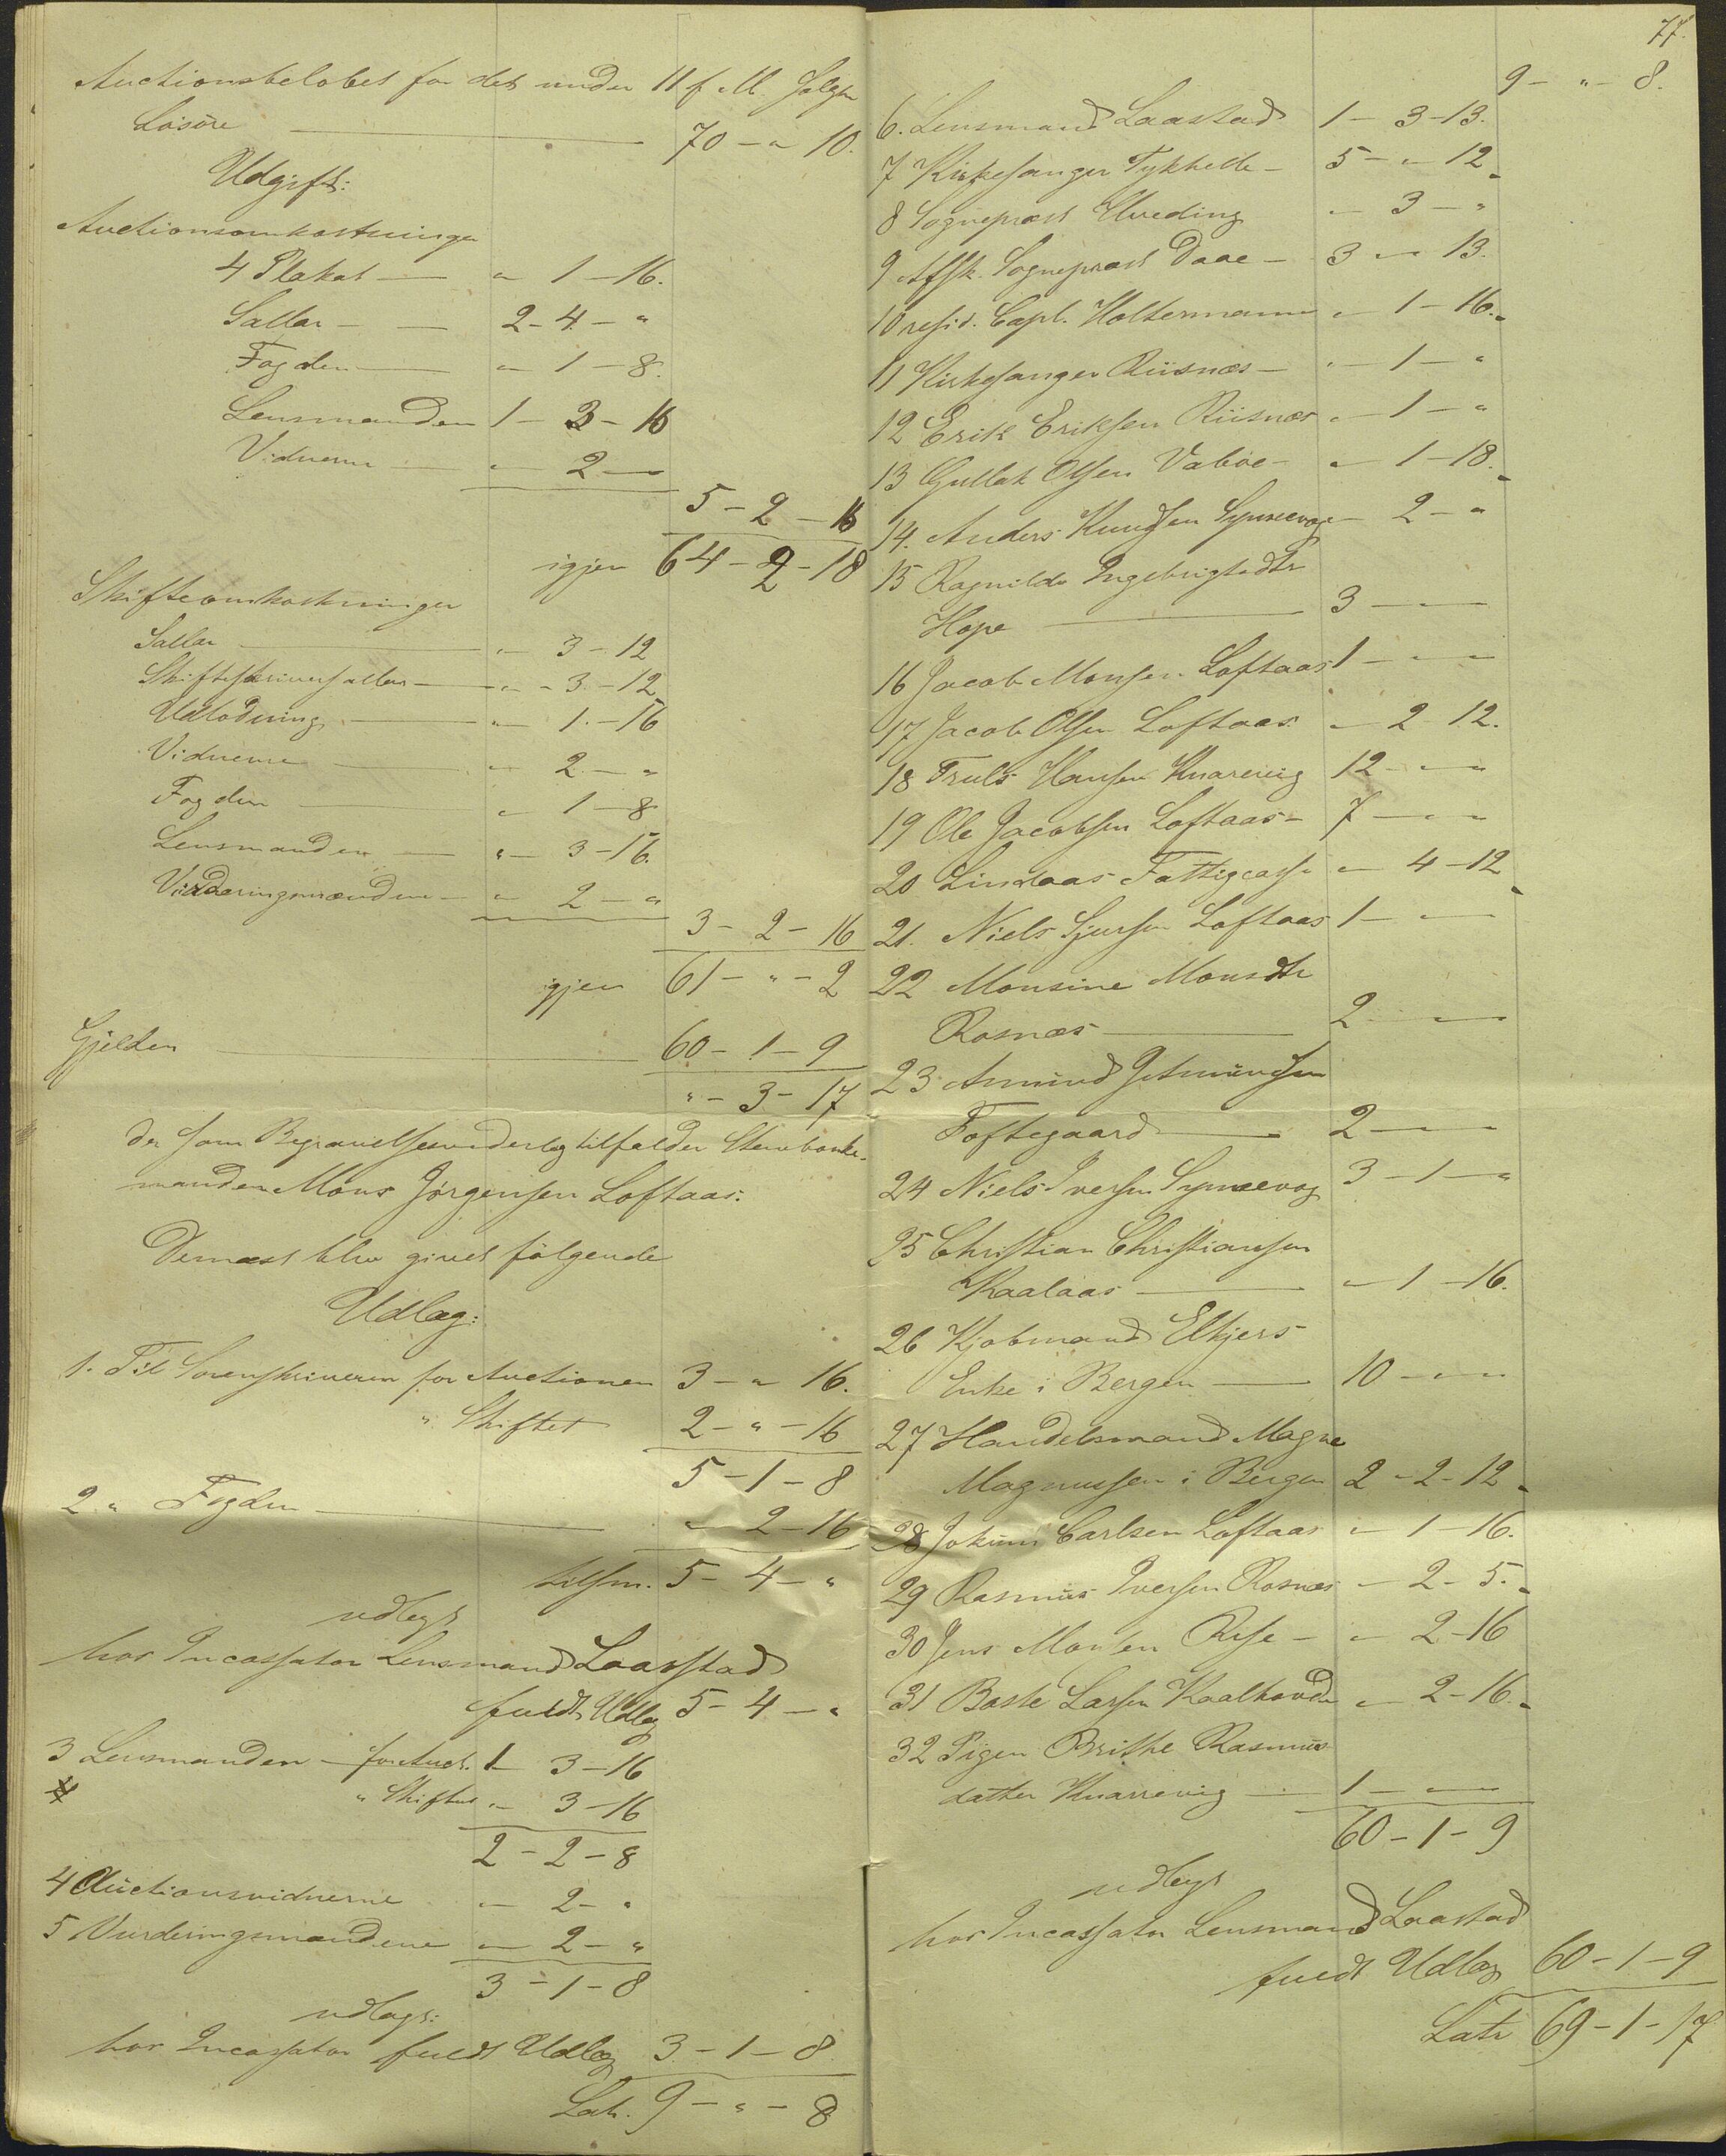 Auctionsbeløbet for det under 11 f. M. solgte
Løsøre — 70 - " - 10.
Udgift:
Auctionsomkostninger
4 Plakat — " - 1 - 16.
Sallar — 2 - 4 - "
Fogden — " - 1 - 8.
Lensmanden 1 - 3 - 16
Vidnerne — " - 2 - "
5 - 2 - 16
igjen 64 - 2 - 18
Skifteomkostninger
Sallar — " - 3 - 12
Skifteskriversallar — " - 3 - 12
Udlodning — " - 1 - 16
Vidnerne — " - 2 - "
Fogden — " - 1 - 8
Lensmanden — " - 3 - 16.
Vurderingsmændene — " - 2 - "
3 - 2 - 16
igjen 61 - " - 2
Gjelden — 60 - 1 - 9
" - 3 - 17
der som Begravelsesvederlag tilfalder Stervbonde-
manden Mons Jørgensen Loftaas.
Dernæst blev givet følgende
Udlæg:
1. Til Sorenskriveren for Auctionen 3 - " - 16.
" Skiftet 2 - " - 16
5 - 1 - 8
2 " Fogden — " - 2 - 16
tilsm. 5 - 4 - "
udlagt
hos Incassator Lensmand Laastad
fuldt Udlæg 5 - 4 - "
3 Lensmanden — for Auct. 1 - 3 - 16
" Skiftet " - 3 - 16
2 - 2 - 8
4 Auctionsvidnerne " - 2 - "
5 Vurderingsmændene " - 2 - "
3 - 1 - 8
udlagt:
hos Incassator fuldt Udlæg 3 - 1 - 8
Lat. 9 - " - 8
77.
9 - " - 8.
6. Lensmand Laastad 1 - 3 - 13.
7 Kirkesanger Tykhelle — 5 - " - 12
8 Sognepræst Hveding " - 3 - "
9 Afsk. Sognepræst Daae — 3 - " - 13.
10 resid. Capl. Holtermann " - 1 - 16.
11 Kirkesanger Riisnæs — " - 1 - "
12 Erik Eriksen Riisnæs " - 1 - "
13 Gullak Olsen Vabøe — " - 1 - 18.
14. Anders Knudsen Synnevaag — 2 - "
15 Ragnilde Ingebrigtsdtr
Hope — 3 - " - "
16 Jacob Monsen Loftaas 1 - " - "
17 Jacob Olsen Loftaas " - 2 - 12.
18 Truls Hansen Knarrevig 12 - " - "
19 Ole Jacobsen Loftaas — 7 - " - "
20 Lindaas Fattigcasse " - 4 - 12
21. Niels Sjursen Loftaas 1 - " - "
22 Monsine Monsdtr
Rosnæs — 2 - " - "
23 Amund J. Amundsen
Toftegaard — 2 - " - "
24 Niels Iversen Synnevaag 3 - 1 - "
25 Christian Christiansen
Kaalaas — " - 1 - 16.
26 Kjøbmand Elkjers
Enke i Bergen — 10 - " - "
27 Handelsmand Magne
Magnussen i Bergen 2 - 2 - 12
28 Jokum Carlsen Loftaas " - 1 - 16.
29 Rasmus Iversen Rosnæs — 2 - 5.
30 Jens Monsen Rise — " - 2 - 16
31 Baste Larsen Kaalhovde " - 2 - 16.
32 Pigen Brithe Rasmus-
datter Knarrevig — 1 - " - "
60 - 1 - 9
udlagt
hos Incassator Lensmand Laastad
fuldt Udlæg 60 - 1 - 9
Latr 69 - 1 - 17